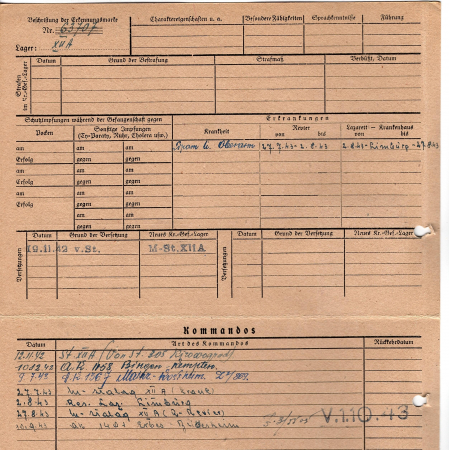 Beschriftung der Erkennungsmarke
Nr. 63707
Lager: XII A
Charaktereigenschaften u. a.
Besondere Fähigkeiten
Sprachkenntnisse
Führung
Strafen im Kr.-Gef.-Lager
Datum
Grund der Bestrafung
Strafmaß
Verbüßt, Datum
Schutzimpfungen während der Gefangenschaft gegen
Pocken
Sonstige Impfungen
(Ty-Paraty, Ruhr, Cholera usw.)
Erkrankungen
Krankheit
Revier
von bis
Lazarett – Krankenhaus
von bis
am am am
Erfolg gegen gegen
am am am
Erfolg gegen gegen
am am am
Erfolg gegen gegen
am am
gegen gegen
27.7.43 - 2.8.43 2.8.43 - Limburg - 27.8.43
Versetzungen
Datum
Grund der Versetzung
Neues Kr.-Gef.-Lager
Versetzungen
Datum
Grund der Versetzung
Neues Kr.-Gef.-Lager
19.11.42 v.St. M-St.XII A
Kommandos
Datum
Art des Kommandos
Rückkehrdatum
12.11.42 St XII A (Von St.
10.12.42 Bingen - Kempten
9.7.43
27.7.43 M-Stalag XII A (Krank)
2.8.43 Res. Laz. Limburg
27.8.43 M-Stalag XII A
V.1.10.43